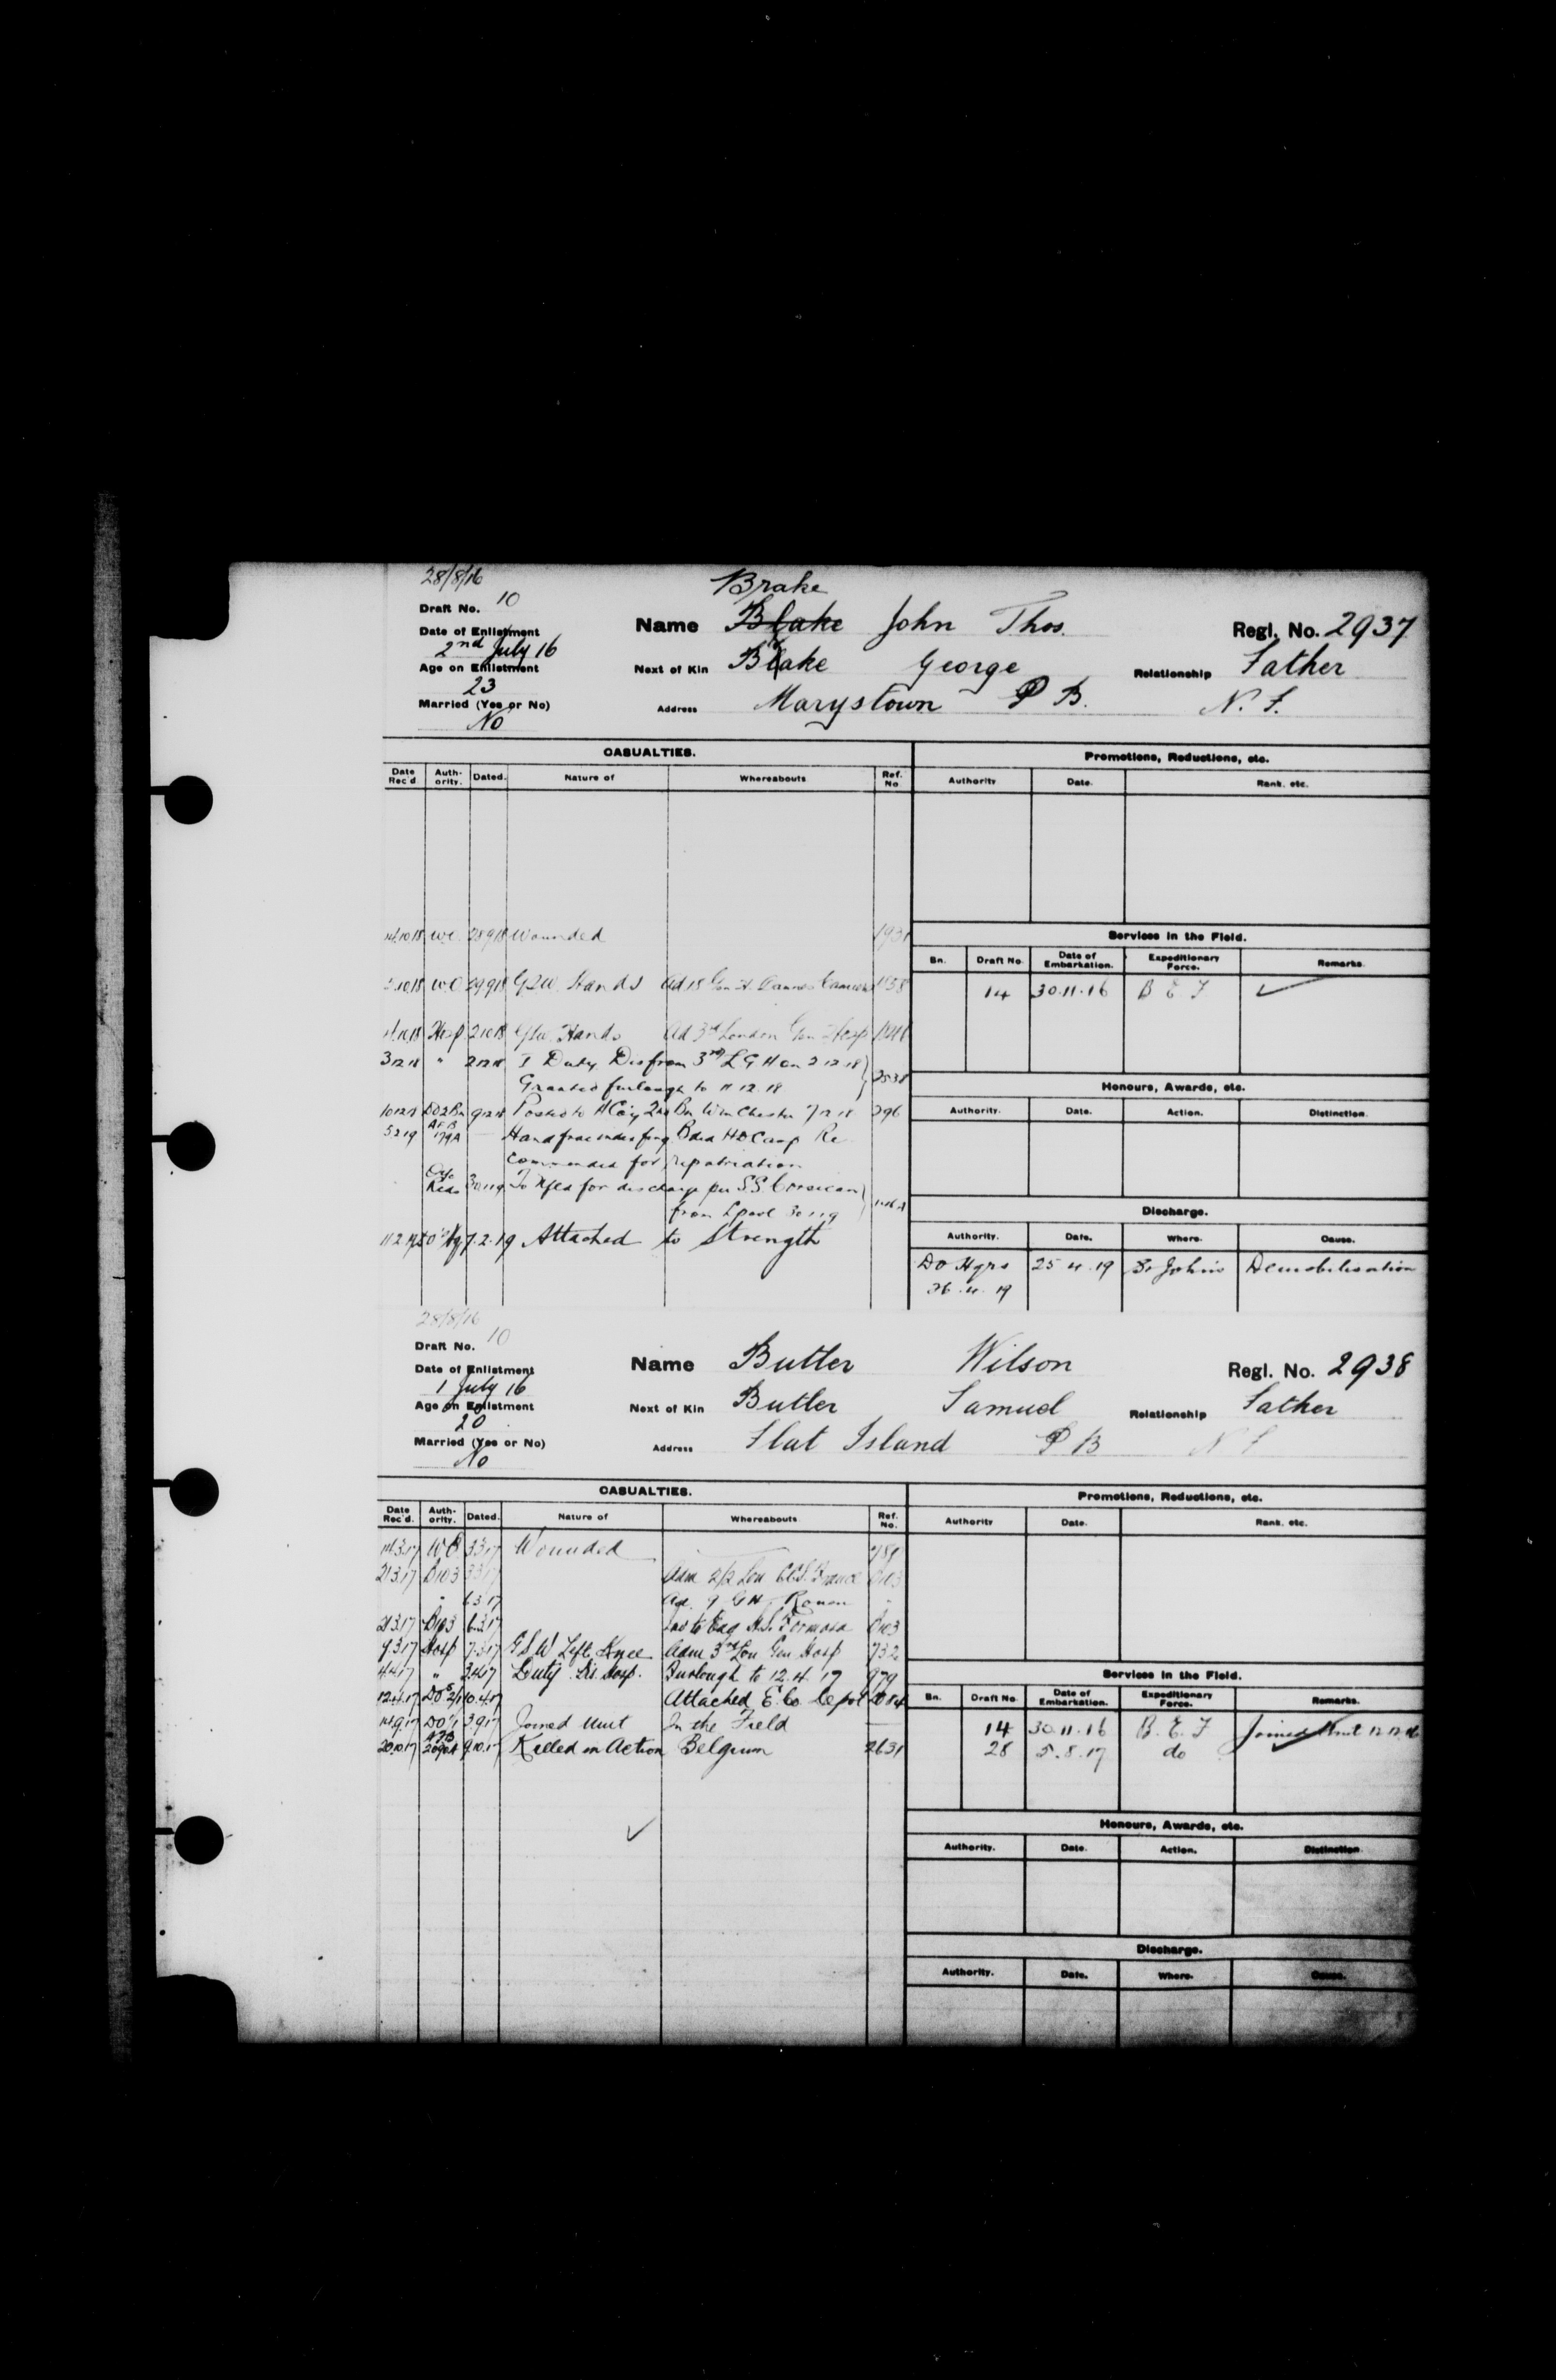 28/8/16
Brake
Draft No. 10
Name Blake John Thos. Regl. No. 2937
Date of Enlistment
2nd July 16
Next of Kin Brake George Relationship Father
Age on Enlistment
23
Address Marystown P B. N. F.
Married (Yes or No)
No
CASUALTIES. Promotions, Reductions, etc.
Date Rec'd Auth-ority. Dated. Nature of Whereabouts Ref. No Authority Date. Rank, etc.
W.O. 28 9 18 Wounded 1931
Services in the Field.
Bn. Draft No. Date of Embarkation. Expeditionary Force. Remarks.
W.O 29 9 18 GSW Hands Ad 18 Gen H. Dannes Camiers
14 30.11.16 B E F ✓
Hosp. 2 10 18 GSW. Hands Ad 3rd London Gen Hosp
3 12 18 " 2 12 18 I Duty Dis from 3rd L G H on 2 12 18
Granted furlough to 11 12 18 2538
Honours, Awards, etc.
Authority. Date. Action. Distinction.
10 12 18 DO 2 Bn 9 12 18 Posted to H Coy 2nd Bn Winchester 7 12 18 296
5 2 19 AFB 179A Hand frac index fing Bded HD Camp Re
commended for repatriation
30 1 19 To Nfld for discharge per S.S. Corsican
from Lpool 30 1 19
Discharge.
Authority. Date. Where. Cause.
11 2 19 7.2.19 Attached to Strength
DO Hqrs 25.4.19 St John's Demobilisation
26.4.19
28/8/16
Draft No. 10
Name Butler Wilson Regl. No. 2938
Date of Enlistment
1 July 16
Next of Kin Butler Samuel Relationship Father
Age on Enlistment
20
Address Flat Island P B N F
Married (Yes or No)
No
CASUALTIES. Promotions, Reductions, etc.
Date Rec'd. Auth-ority. Dated. Nature of Whereabouts Ref. No. Authority Date. Rank, etc.
14.3.17 WO 3 3 17 Wounded
21 3.17 B103 3 3 17 Adm 2/2 Lon CCS. France B103
6 3 17 Ad. 9 G H, Rouen
21 3.17 B103 6.3.17 Inv to Eng H.S. Formosa B103
9.3.17 Hosp 7.3.17 GSW Left Knee Adm 3rd Lon Gen Hosp 732
4.4.17 " 3.4.17 Duty Dis Hosp. Furlough to 12.4.17 979
Services in the Field.
Bn. Draft No. Date of Embarkation. Expeditionary Force. Remarks.
12.4.17 10.4.17 Attached E. Co. Depot
14.9.17 3.9.17 Joined Unit In the Field
14 30.11.16 B. E. F Joined Unit 12.12.16
20.10.17 AFB 2090A 9.10.17 Killed in Action Belgium 2631
28 5.8.17 do
✓
Honours, Awards, etc.
Authority. Date. Action. Distinction
Discharge.
Authority. Date. Where. Cause.